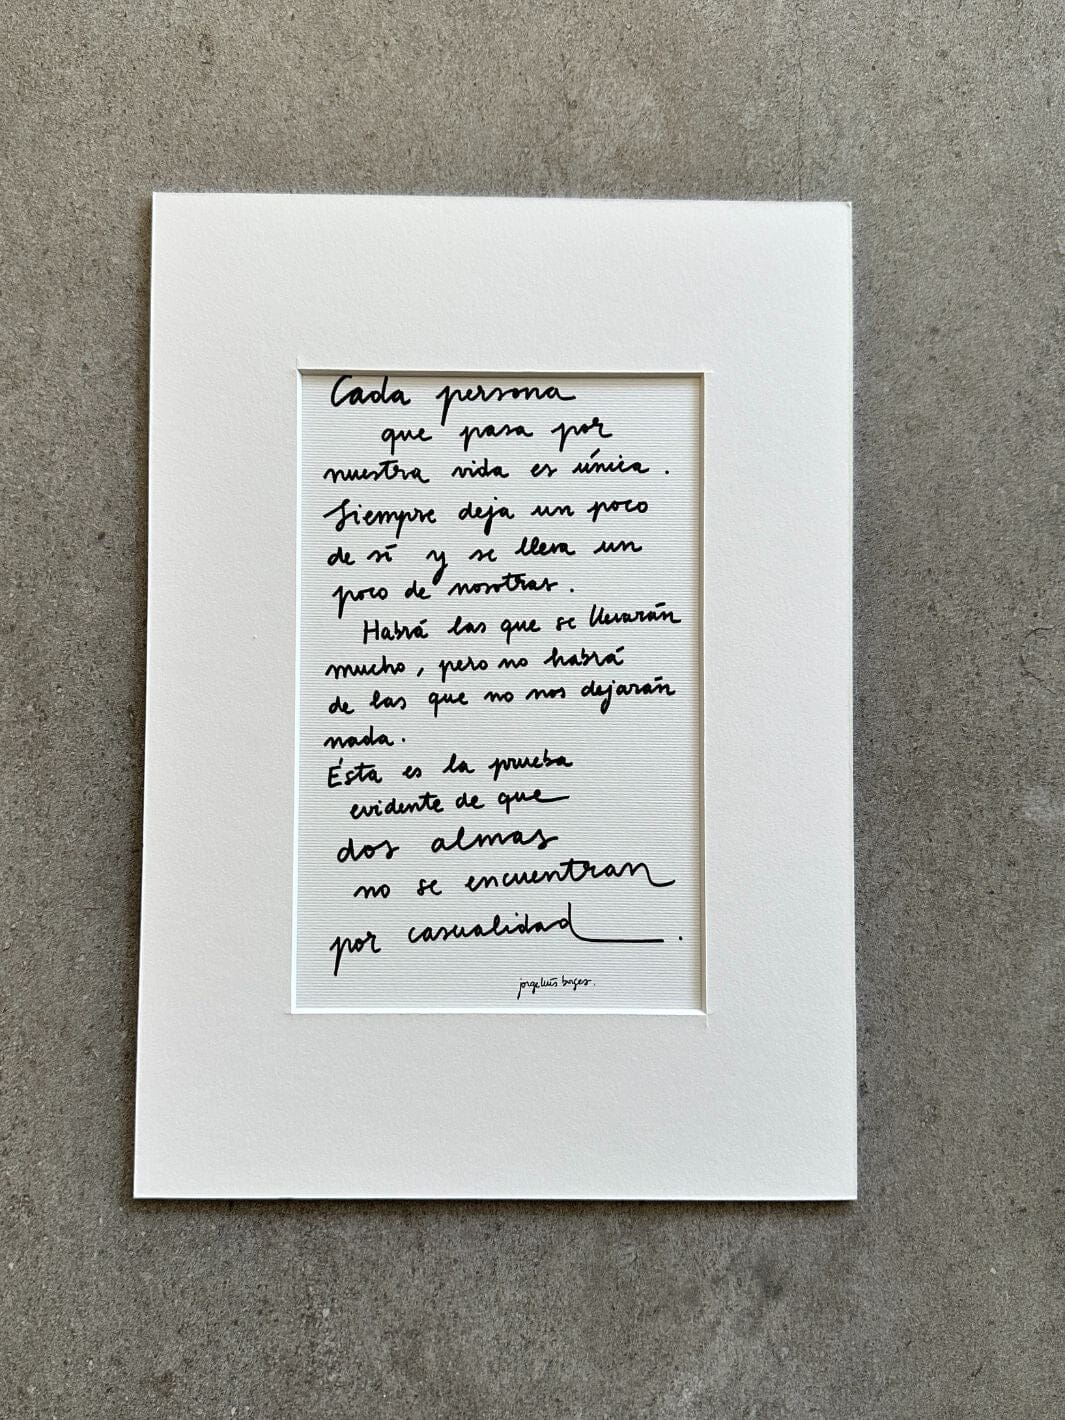 Cada persona
que pasa por
nuestra vida es única.
Siempre deja un poco
de sí y se lleva un
poco de nosotras.
Habrá las que se llevarán
mucho, pero no habrá
de las que no nos dejarán
nada.
Ésta es la prueba
evidente de que
dos almas
no se encuentran
por casualidad.
jorge luís borges.